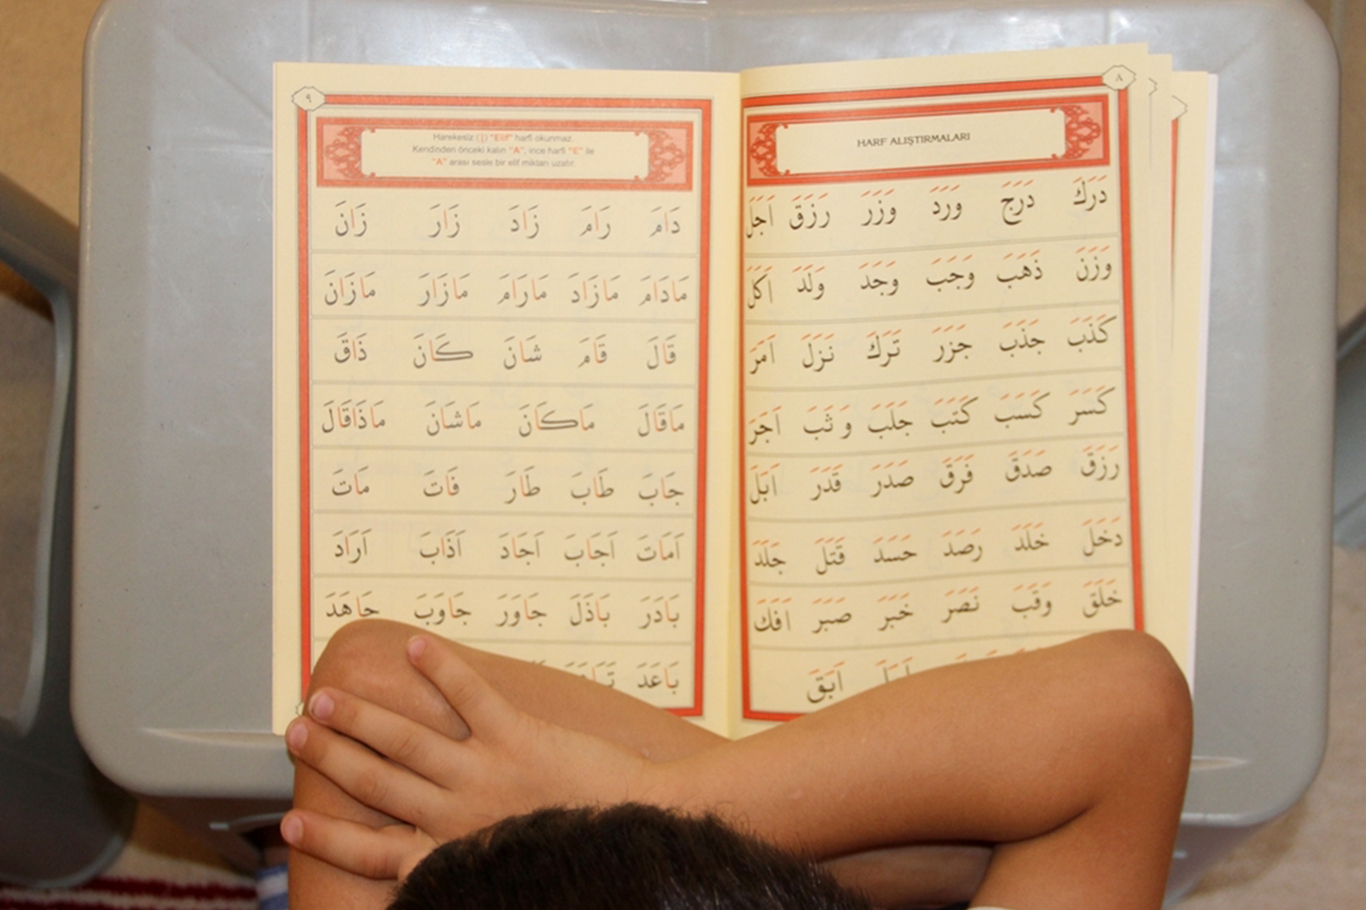 ٨
HARF ALIŞTIRMALARI
دَرَكَ دَرَجَ وَرَدَ وَزَرَ رَزَقَ اَجَلَ
وَزَنَ ذَهَبَ وَجَبَ وَجَدَ وَلَدَ اَكَلَ
كَذَبَ جَذَبَ جَزَرَ تَرَكَ نَزَلَ اَمَرَ
كَسَرَ كَسَبَ كَتَبَ جَلَبَ وَثَبَ اَجَرَ
رَزَقَ صَدَقَ فَرَقَ صَدَرَ قَدَرَ اَبَلَ
دَخَلَ خَلَدَ رَصَدَ حَسَدَ قَتَلَ جَلَدَ
خَلَقَ وَقَبَ نَصَرَ خَبَرَ صَبَرَ اَفَكَ
اَبَقَ
٩
Harekesiz (ا) "Elif" harfi okunmaz.
Kendinden önceki kalın "A", ince harfi "E" ile
"A" arası sesle bir elif miktarı uzatır.
دَامَ رَامَ زَادَ زَارَ زَانَ
مَادَامَ مَازَادَ مَارَامَ مَازَارَ مَازَانَ
قَالَ قَامَ شَانَ كَانَ ذَاقَ
مَاقَالَ مَاكَانَ مَاشَانَ مَاذَاقَالَ
جَابَ طَابَ طَارَ فَاتَ مَاتَ
اَمَاتَ اَجَابَ اَجَادَ اَذَابَ اَرَادَ
بَادَرَ بَاذَلَ جَاوَرَ جَاوَبَ جَاهَدَ
بَاعَدَ